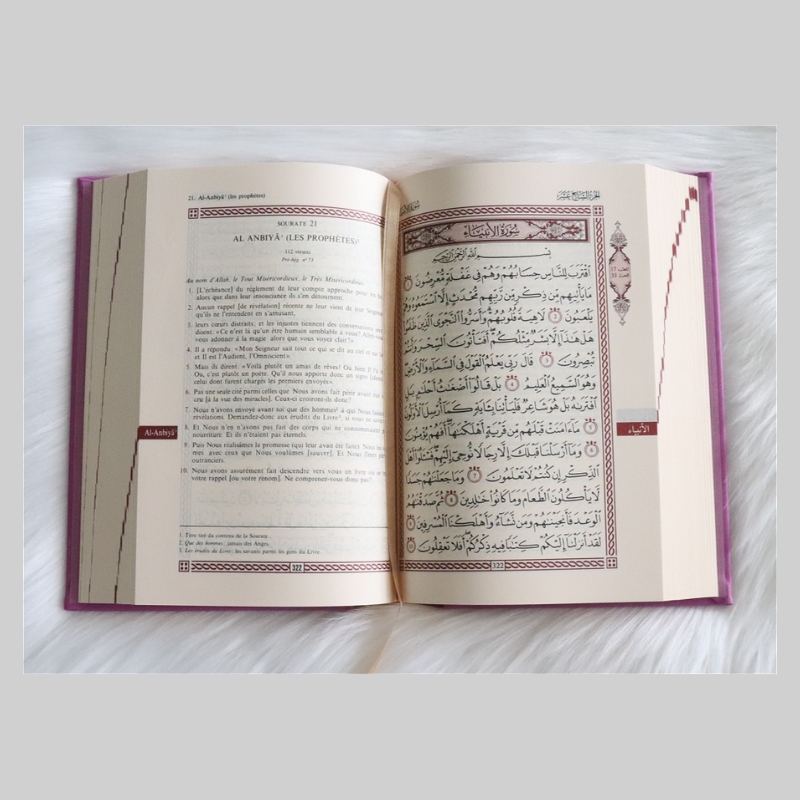 21. Al-Anbiyâ' (les prophètes)
SOURATE 21
AL ANBIYÂ' (LES PROPHÈTES)¹
112 versets
Pré-hég. n° 73
Au nom d'Allah, le Tout Miséricordieux, le Très Miséricordieux.
1. [L'échéance] du règlement de leur compte approche pour les
alors que dans leur insouciance ils s'en détournent.
2. Aucun rappel [de révélation] récente ne leur vient de leur Seigneur
qu'ils ne l'entendent en s'amusant,
3. leurs cœurs distraits, et les injustes tiennent des conversations
disent: «Ce n'est là qu'un être humain semblable à vous? Allez-
vous adonner à la magie alors que vous voyez clair?»
4. Il a répondu: «Mon Seigneur sait tout ce qui se dit au ciel et sur
et Il est l'Audient, l'Omniscient».
5. Mais ils dirent: «Voilà plutôt un amas de rêves! Ou bien Il l'a
Ou, c'est plutôt un poète. Qu'il nous apporte donc un signe
celui dont furent chargés les premiers envoyés».
6. Pas une seule cité parmi celles que Nous avons fait périr avant eux
cru [à la vue des miracles]. Ceux-ci croiront-ils donc?
7. Nous n'avons envoyé avant toi que des hommes² à qui Nous
révélations. Demandez-donc aux érudits du Livre³, si vous ne
8. Et Nous n'en n'avons pas fait des corps qui ne consommaient
nourriture. Et ils n'étaient pas éternels.
9. Puis Nous réalisâmes la promesse (qui leur avait été faite). Nous
mes avec ceux que Nous voulûmes [sauver], Et Nous fîmes
outranciers.
10. Nous avons assurément fait descendre vers vous un livre où se
votre rappel [ou votre renom]. Ne comprenez-vous donc pas?
1. Titre tiré du contenu de la Sourate.
2. Que des hommes: jamais des Anges.
3. Les érudits du Livre: les savants parmi les gens du Livre.
322
Al-Anbiyâ'
الجزء السابع عشر
سُورَةُ الأَنبِيَاءِ
بِسْمِ اللَّهِ الرَّحْمَٰنِ الرَّحِيمِ
اقْتَرَبَ لِلنَّاسِ حِسَابُهُمْ وَهُمْ فِي غَفْلَةٍ مُّعْرِضُونَ ١
مَا يَأْتِيهِم مِّن ذِكْرٍ مِّن رَّبِّهِم مُّحْدَثٍ إِلَّا اسْتَمَعُوهُ وَهُمْ
يَلْعَبُونَ ٢ لَاهِيَةً قُلُوبُهُمْ وَأَسَرُّوا النَّجْوَى الَّذِينَ ظَلَمُوا
هَلْ هَٰذَا إِلَّا بَشَرٌ مِّثْلُكُمْ أَفَتَأْتُونَ السِّحْرَ وَأَنتُمْ
تُبْصِرُونَ ٣ قَالَ رَبِّي يَعْلَمُ الْقَوْلَ فِي السَّمَاءِ وَالْأَرْضِ
وَهُوَ السَّمِيعُ الْعَلِيمُ ٤ بَلْ قَالُوا أَضْغَاثُ أَحْلَامٍ بَلِ
افْتَرَاهُ بَلْ هُوَ شَاعِرٌ فَلْيَأْتِنَا بِآيَةٍ كَمَا أُرْسِلَ الْأَوَّلُونَ
٥ مَا آمَنَتْ قَبْلَهُم مِّن قَرْيَةٍ أَهْلَكْنَاهَا أَفَهُمْ يُؤْمِنُونَ
٦ وَمَا أَرْسَلْنَا قَبْلَكَ إِلَّا رِجَالًا نُّوحِي إِلَيْهِمْ فَاسْأَلُوا أَهْلَ
الذِّكْرِ إِن كُنتُمْ لَا تَعْلَمُونَ ٧ وَمَا جَعَلْنَاهُمْ جَسَدًا
لَّا يَأْكُلُونَ الطَّعَامَ وَمَا كَانُوا خَالِدِينَ ٨ ثُمَّ صَدَقْنَاهُمُ
الْوَعْدَ فَأَنجَيْنَاهُمْ وَمَن نَّشَاءُ وَأَهْلَكْنَا الْمُسْرِفِينَ ٩
لَقَدْ أَنزَلْنَا إِلَيْكُمْ كِتَابًا فِيهِ ذِكْرُكُمْ أَفَلَا تَعْقِلُونَ ١٠
322
الأنبياء